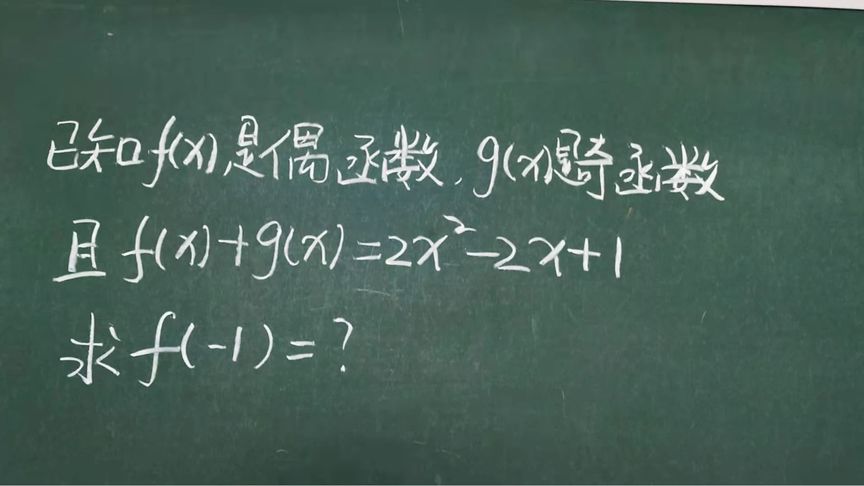 已知f(x)是偶函数,g(x)是奇函数
且f(x)+g(x)=2x²-2x+1
求f(-1)=?